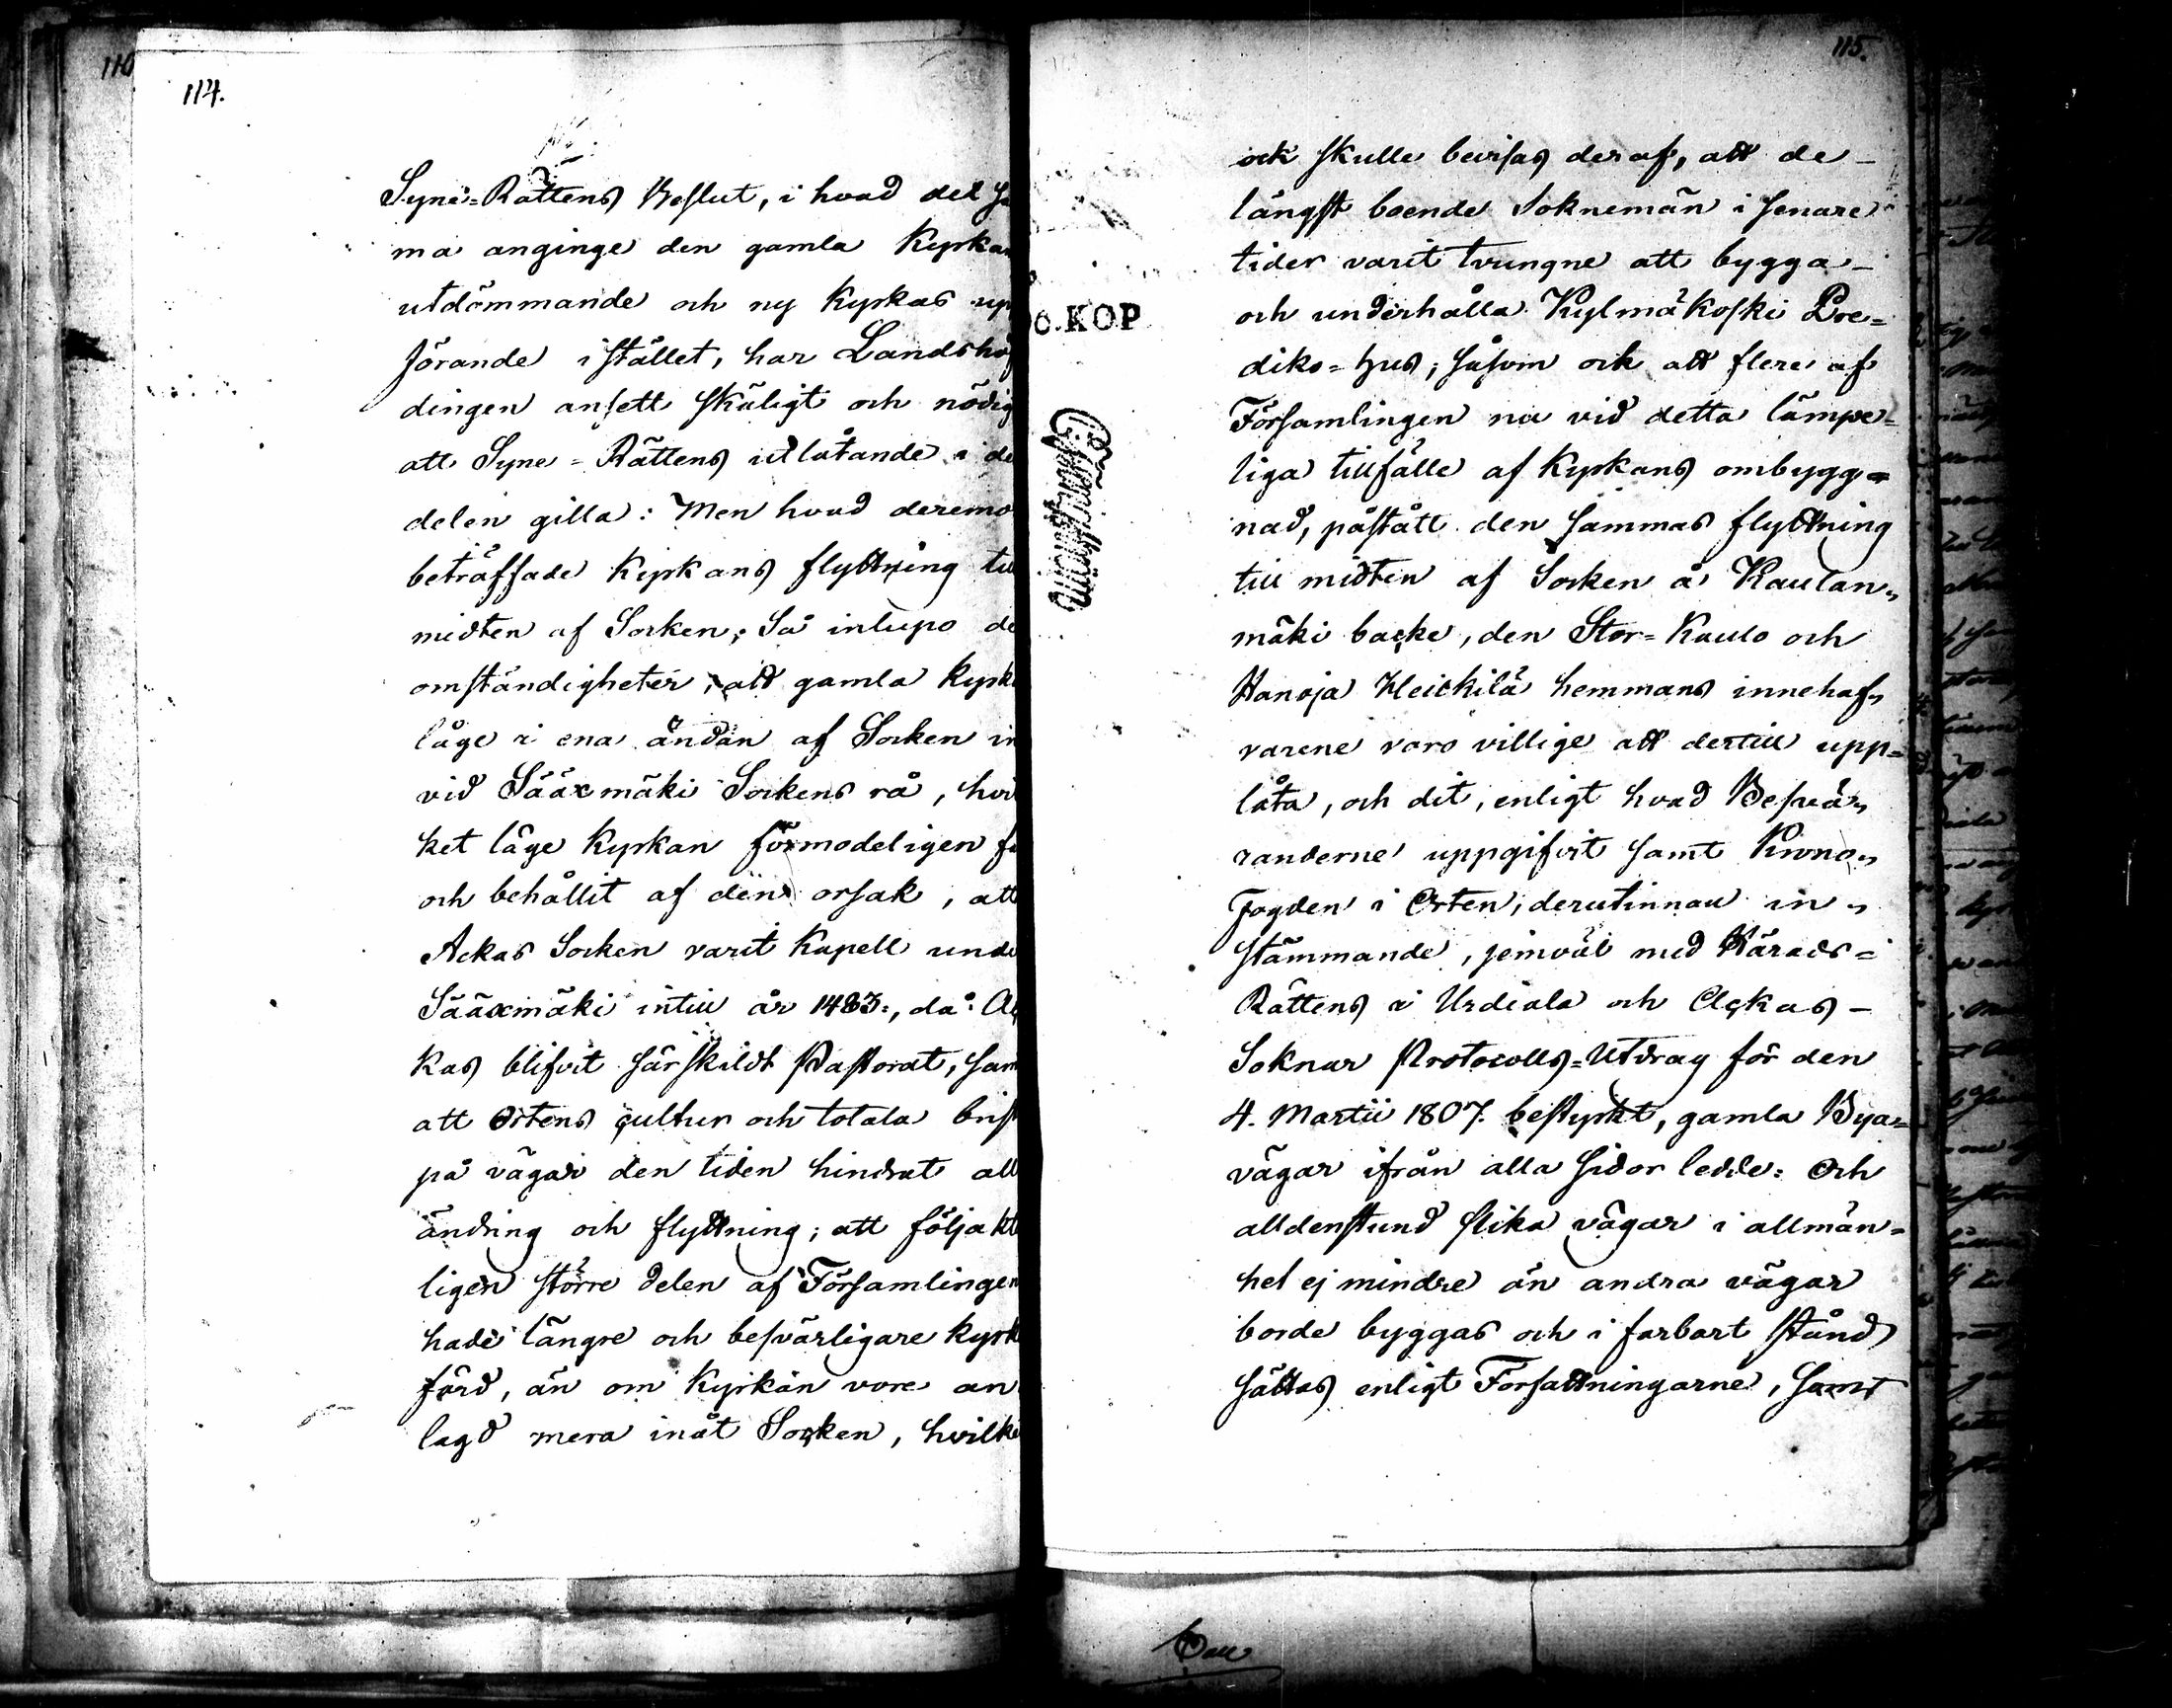 114.
Syne=Rättens Beslut, i hvad det
ma anginge den gamla Kyrkan
utdömmande och ny Kyrkas up
förande i stället, har Landshöf
dingen ansett skäligt och nödig
att Syne=Rättens utlåtande i de
delen gilla: Men hvad deremo
beträffade Kyrkans flyttning till
midten af Socken; Så inlupo de
omständigheter, att gamla Kyrk
låge i ena ändan af Socken in
vid Sääxmäki Sockens rå, hvil
ket läge Kyrkan förmodeligen få
och behållit af den orsak, att
Ackas Socken varit Kapell unde
Sääxmäki intill år 1483:, då Ac
kas blifvit särskildt Pastorat, sam
att Ortens cultur och totala brist
på vägar den tiden hindrat all
ändring och flyttning; att följakt
ligen större delen af Församlingen
hade längre och besvärligare Kyrk
färd, än om Kyrkan vore an
lagd mera inåt Socken, hvilke
115.
ock skulle bevisas deraf, att de
längst boende Soknemän i senare
tider varit tvungne att bygga
och underhålla Kylmäkoski Pre=
diko=hus; såsom ock att flere af
Församlingen nu vid detta lämpe=
liga tillfälle af Kyrkans ombygg=
nad, påstått den sammas flyttning
till midten af Socken å Kaulan=
mäki backe, den Stor=Kaulo och
Hanoja Heickilä hemmans innehaf=
varene voro villige att dertill upp=
låta, och dit, enligt hvad Besvä=
randerne uppgifvit samt Krono=
Fogden i Orten, derutinnan in=
stämmande, jemväl med Härads=
Rättens i Urdiala och Ackas
Soknar Protocolls=Utdrag för den
4. Martii 1807. bestyrkt, gamla Bya=
vägar ifrån alla sidor ledde: Och
alldenstund slika vägar i allmän=
het ej mindre än andra vägar
borde byggas och i farbart stånd
sättas enligt Författningarne, samt
6.KOP